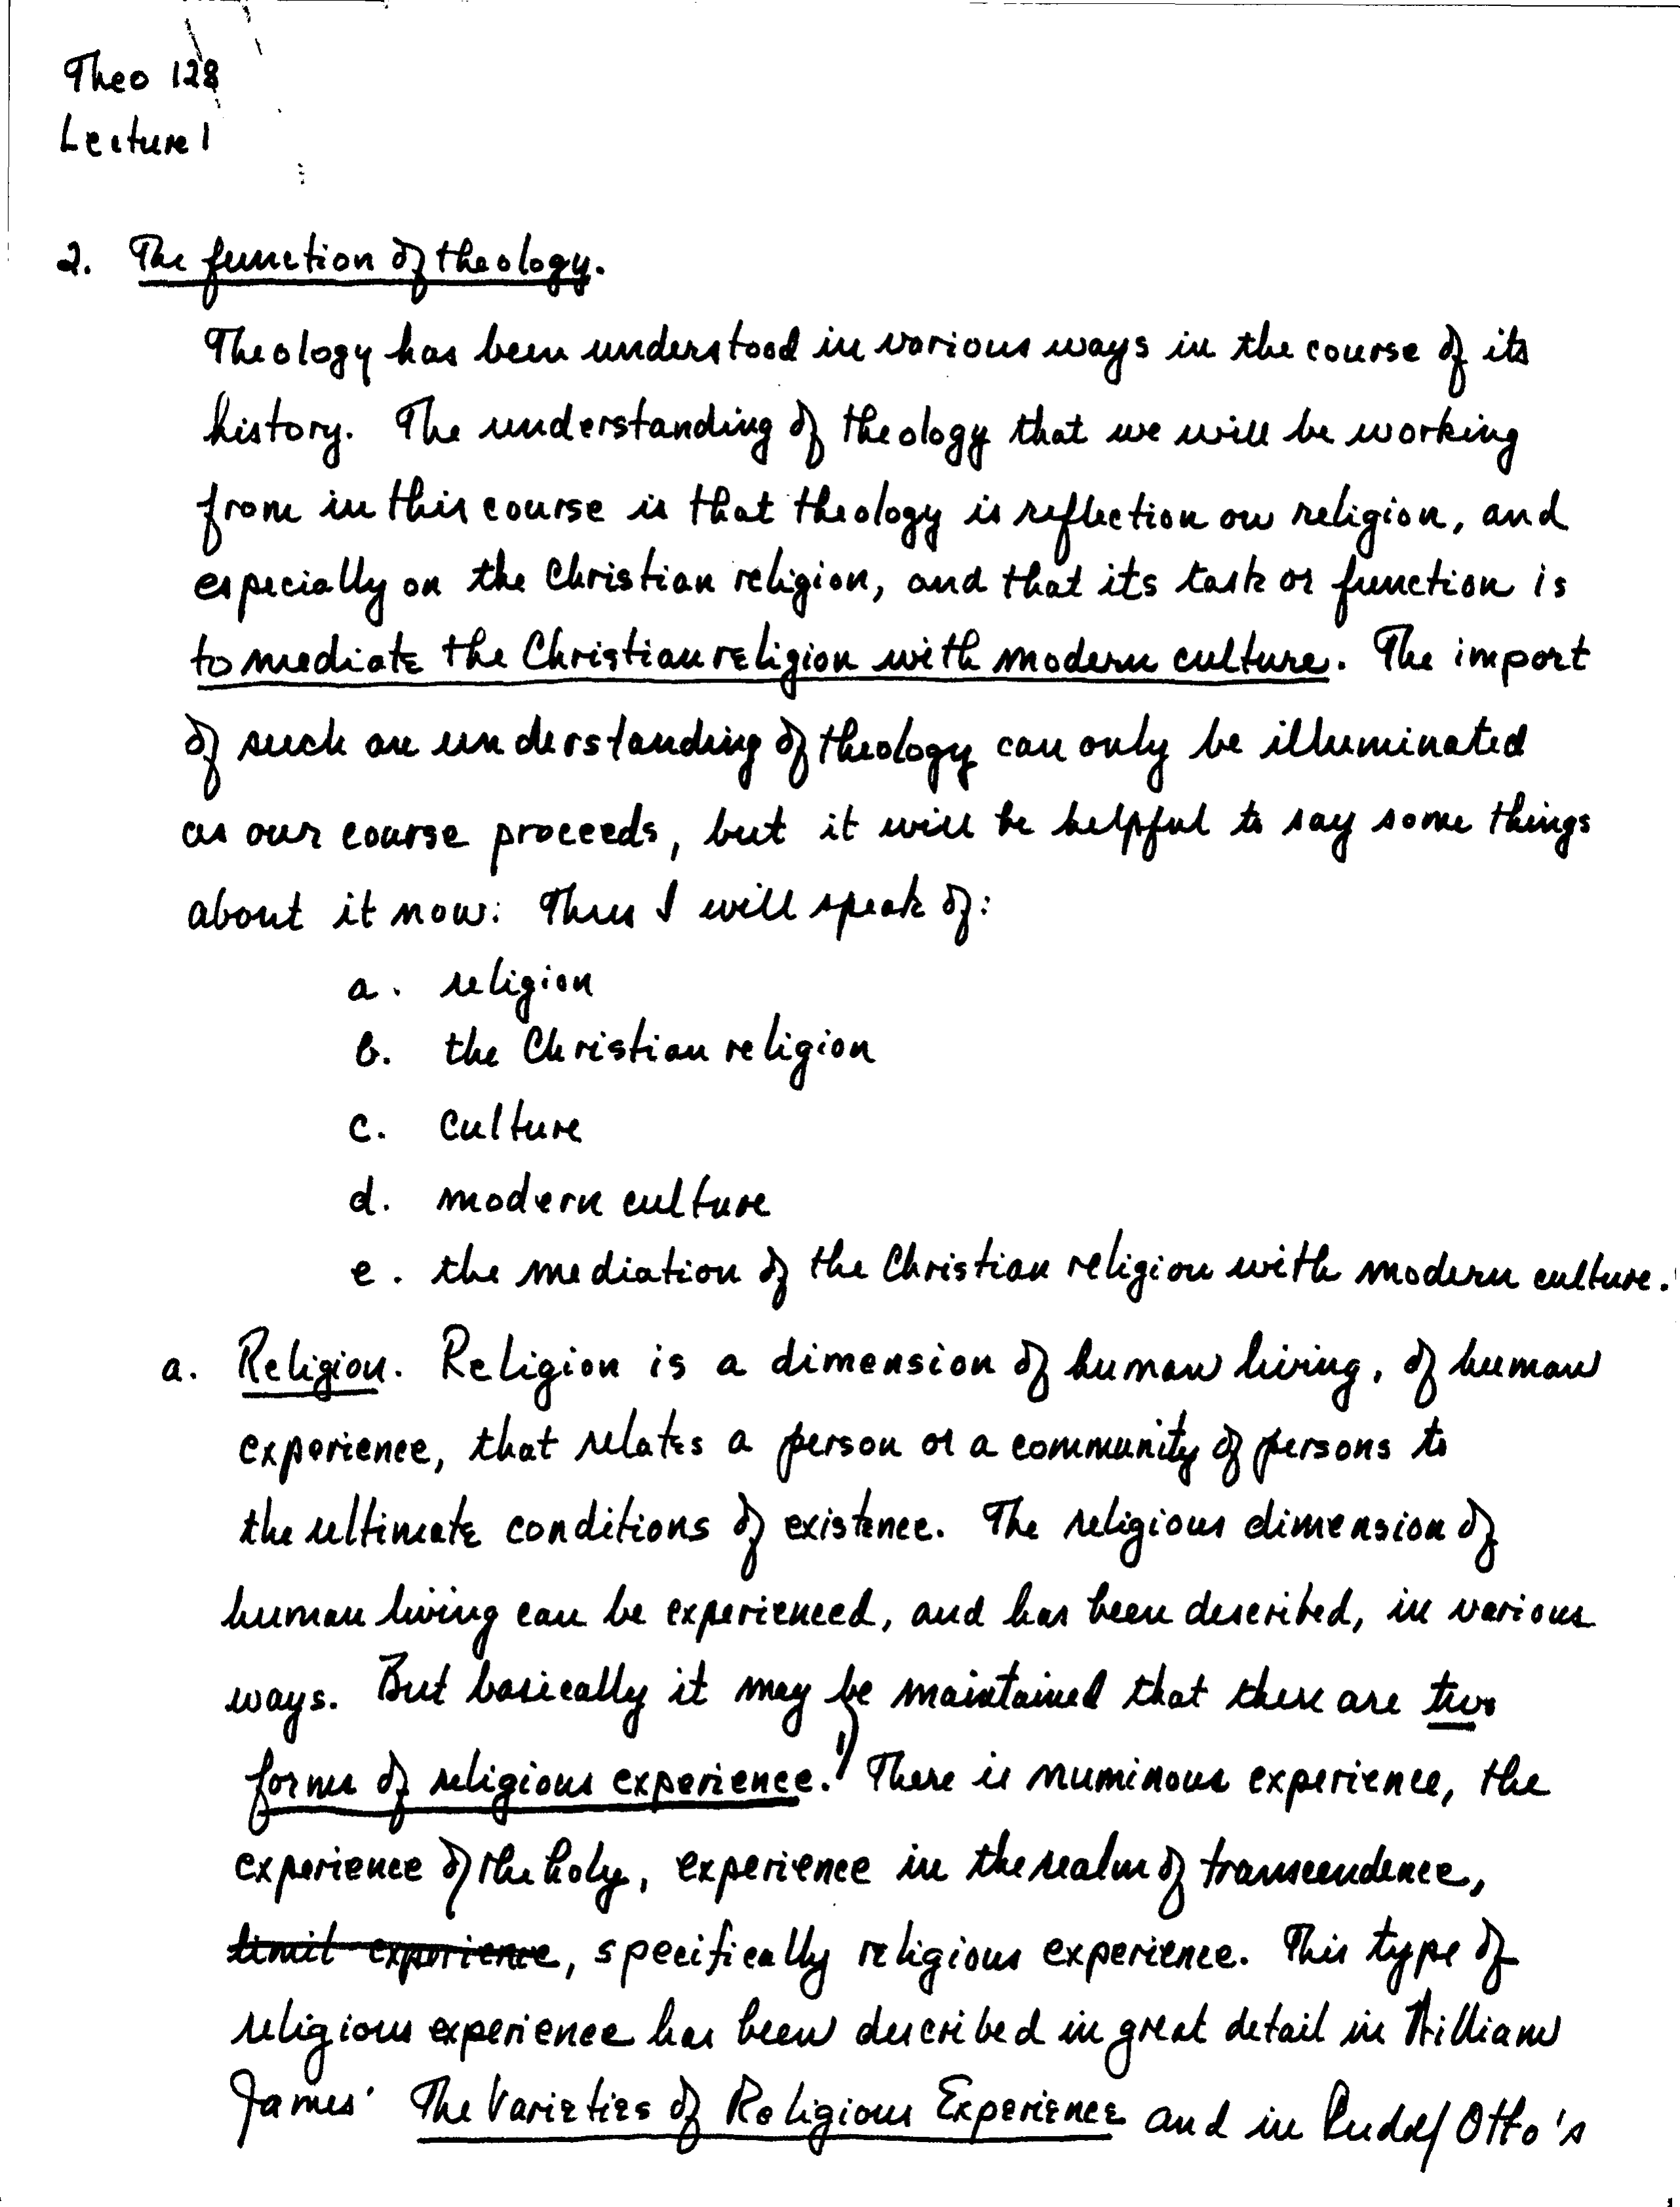 Theo 128
Lecture 1
2. The function of theology.
Theology has been understood in various ways in the course of its
history. The understanding of theology that we will be working
from in this course is that theology is reflection on religion, and
especially on the Christian religion, and that its task or function is
to mediate the Christian religion with modern culture. The import
of such an understanding of theology can only be illuminated
as our course proceeds, but it will be helpful to say some things
about it now: Thus I will speak of:
a. religion
b. the Christian religion
c. culture
d. modern culture
e. the mediation of the Christian religion with modern culture.
a. Religion. Religion is a dimension of human living, of human
experience, that relates a person or a community of persons to
the ultimate conditions of existence. The religious dimension of
human living can be experienced, and has been described, in various
ways. But basically it may be maintained that there are two
forms of religious experience. There is numinous experience, the
experience of the holy, experience in the realm of transcendence,
limit experience, specifically religious experience. This type of
religious experience has been described in great detail in William
James' The Varieties of Religious Experience and in Rudolf Otto's